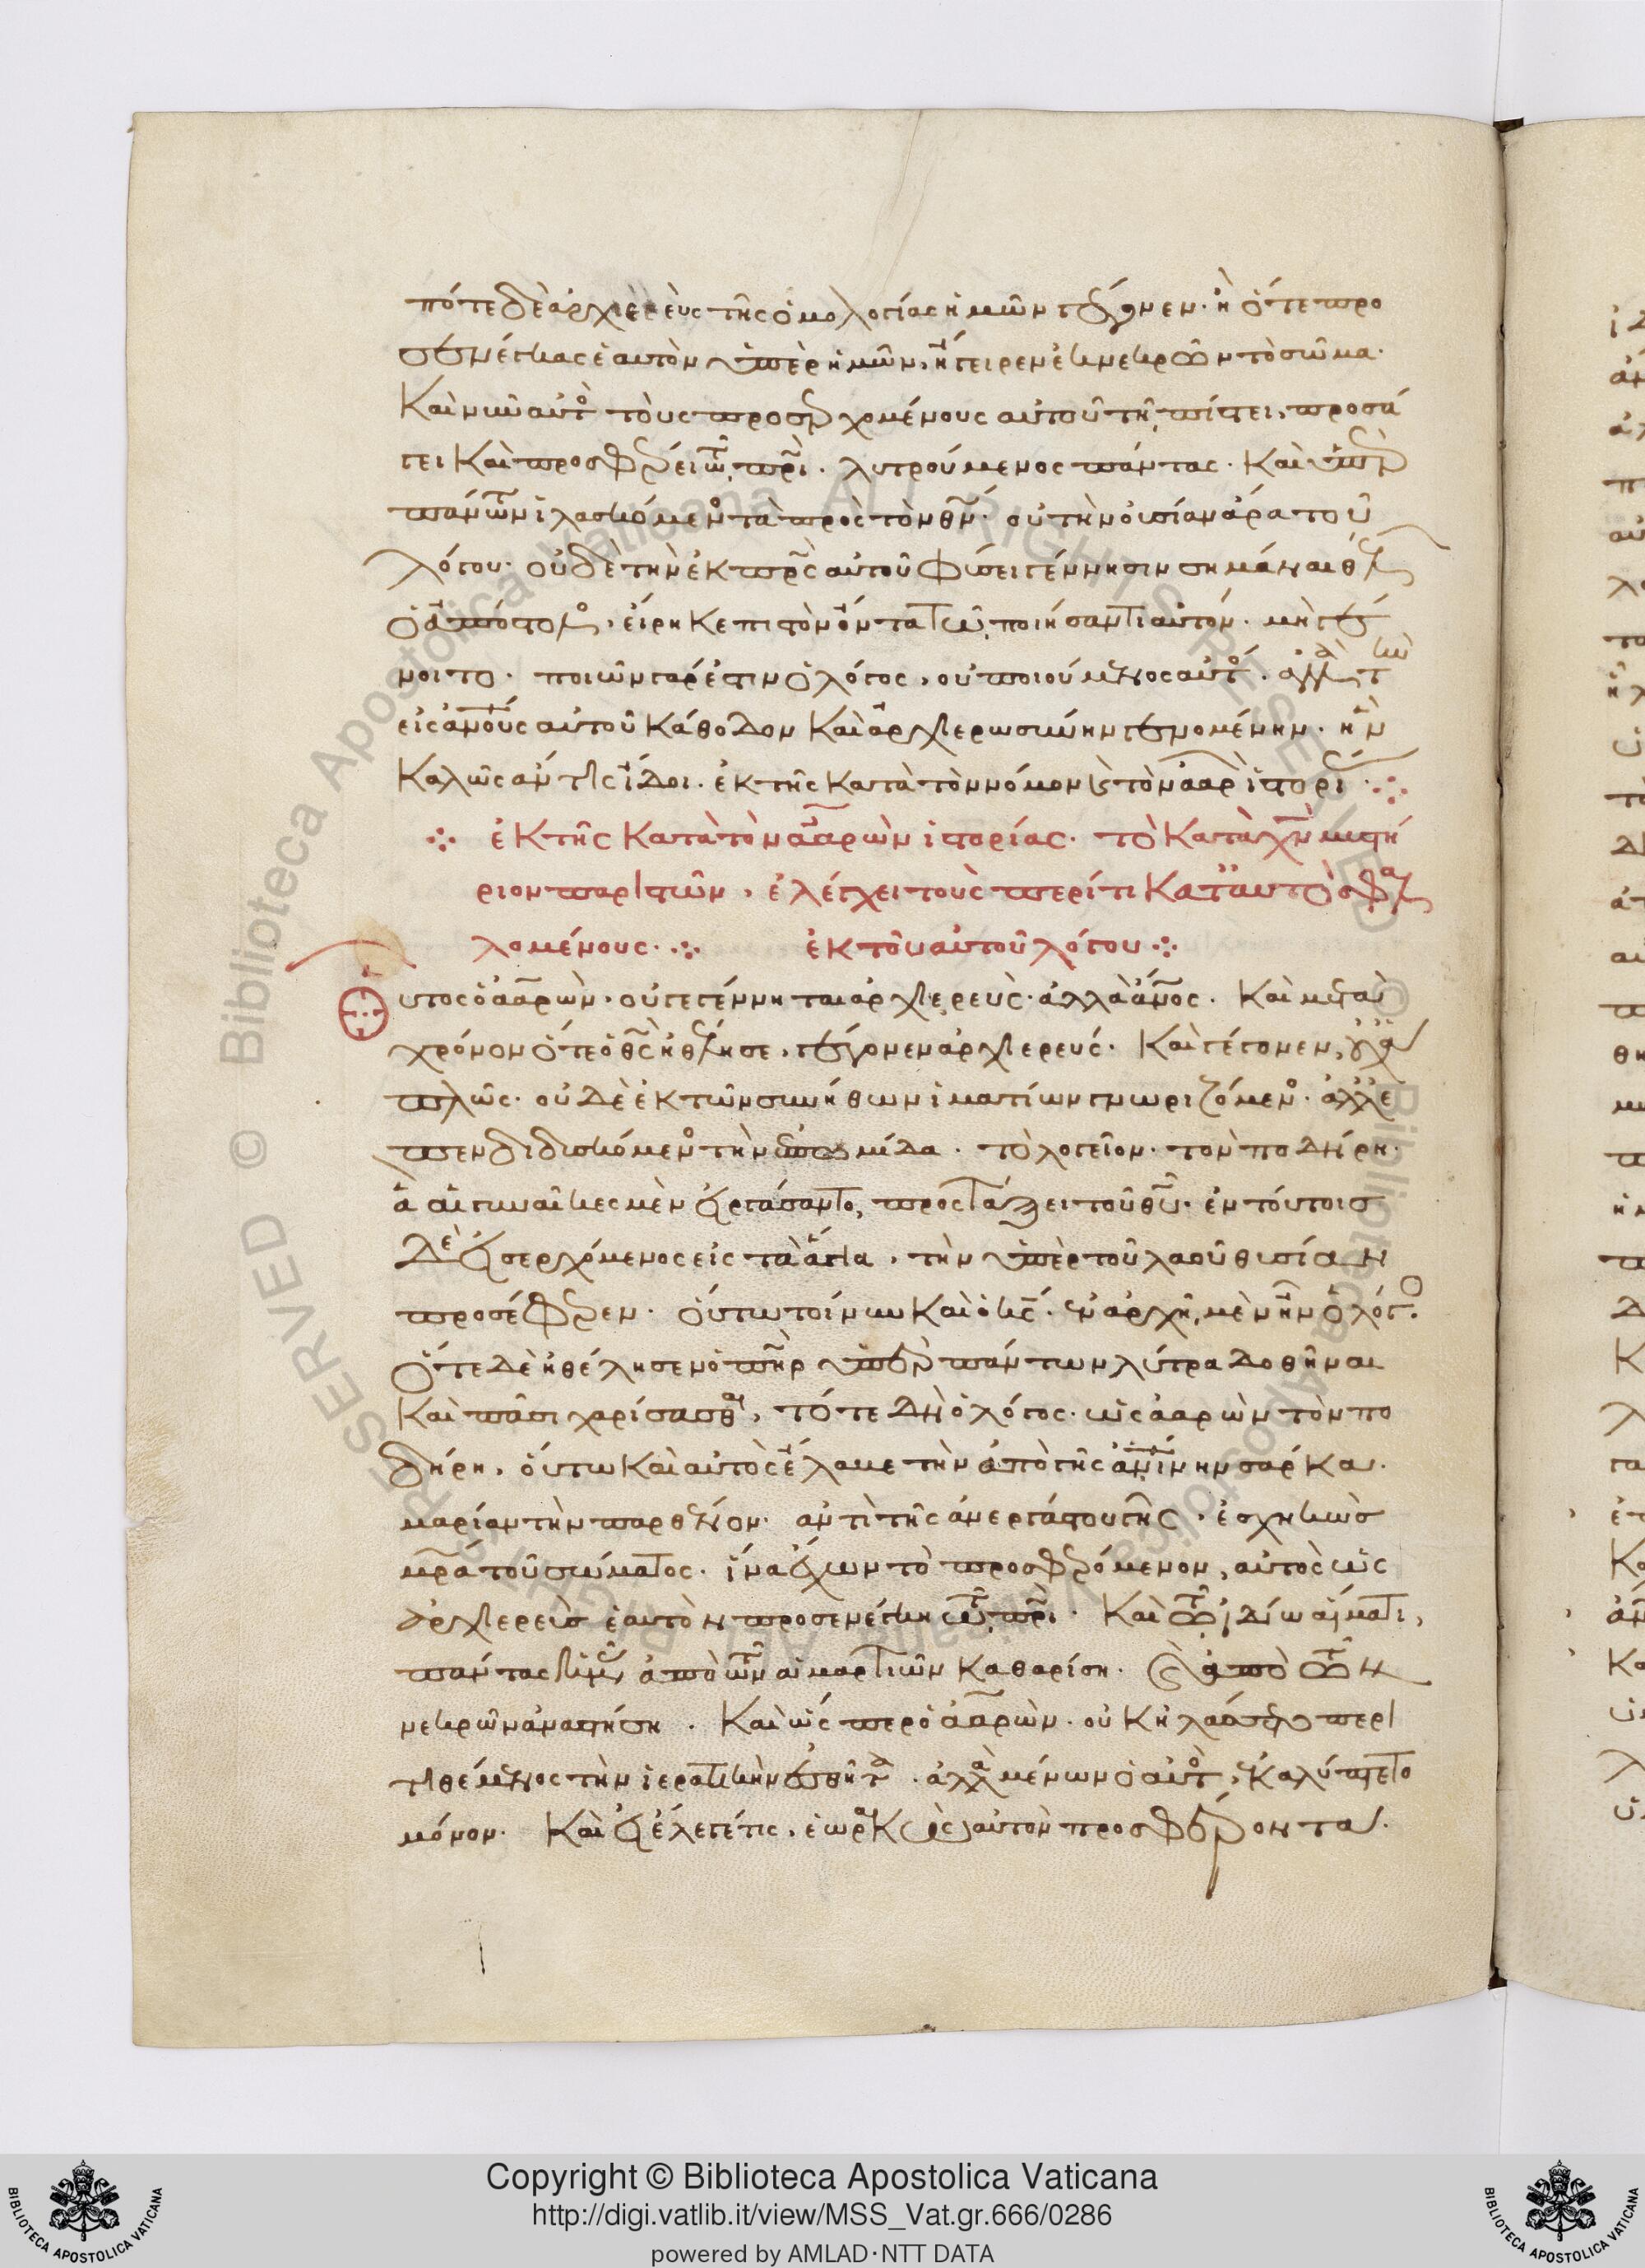 πότε δὲ ἀρχιερεὺς τῆς ὁμολογίας ἡμῶν γέγονεν· ἢ ὅτε προ
σενέγκας ἑαυτὸν ὑπὲρ ἡμῶν, ἤγειρεν ἐκ νεκρῶν τὸ σῶμα·
Καὶ νῦν αὐτὸς τοὺς προσερχομένους αὐτοῦ τῇ πίστει, προσά
γει Καὶ προσφέρει τῷ πρι· λυτρούμενος πάντας· Καὶ ὑπὲρ
πάντων ἱλασκόμενος τὰ πρὸς τὸν θν· οὐ τὴν οὐσίαν ἄρα τοῦ
λόγου· οὐδὲ τὴν ἐκ πρς αὐτοῦ φύσει γέννησιν σημᾶναι θέλων
ὁ ἀπόστολος, εἴρηκε πιστὸν ὄντα τῷ ποιήσαντι αὐτόν· μὴ γέ
νοιτο· ποιῶν γάρ ἐστιν ὁ λόγος, οὐ ποιούμενος αὐτός· ἀλλὰ τὴν
εἰς ἀνους αὐτοῦ κάθοδον Καὶ ἀρχιερωσύνην γενομένην· ἣν
Καλῶς ἄν τις ἴδοι· ἐκ τῆς κατὰ τὸν νόμον καὶ τὸν ἀαρὼν ἱστορίας·
ἐκ τῆς κατὰ τὸν ἀαρὼν ἱστορίας· τὸ κατὰ χν μυστή
ριον παριστῶν, ἐλέγχει τοὺς περί τι κατ' αὐτὸ σφαλ
λομένους· ἐκ τοῦ αὐτοῦ λόγου
Οὗτος ὁ ἀαρὼν· οὐ γεγέννηται ἀρχιερεὺς· ἀλλὰ ἀνος· Καὶ μετὰ
χρόνον ὅτε ὁ θς ἠθέλησε, γέγονεν ἀρχιερεύς· Καὶ γέγονεν, οὐχ ἁ
πλῶς· οὐδὲ ἐκ τῶν συνήθων ἱματίων γνωριζόμενος· ἀλλ' ἐ
πενδιδυσκόμενος τὴν ἐπωμίδα· τὸ λογεῖον· τὸν ποδήρη·
ἃ αἱ γυναῖκες μὲν εἰργάσαντο, προστάξει τοῦ θυ· ἐν τούτοις
δὲ εἰσερχόμενος εἰς τὰ ἅγια, τὴν ὑπὲρ τοῦ λαοῦ θυσίαν
προσέφερεν· οὕτω τοίνυν Καὶ ὁ κς· ἐν ἀρχῇ μὲν ἦν ὁ λόγος·
Ὅτε δὲ ἠθέλησεν ὁ πηρ ὑπὲρ πάντων λύτρα δοθῆναι
Καὶ πᾶσι χαρίσασθαι, τότε δὴ ὁ λόγος· ὡς ἀαρὼν τὸν πο
δήρη, οὕτω Καὶ αὐτὸς ἔλαβε τὴν ἀπὸ γῆς ἀνίνην σάρκα·
μαρίαν τὴν παρθένον· ἀντὶ τῆς ἀνεργάστου γῆς, ἐσχηκὼς
μρα τοῦ σώματος· ἵνα ἔχων τὸ προσφερόμενον, αὐτὸς ὡς
ἀρχιερεὺς ἑαυτὸν προσενέγκῃ τῷ πρι· Καὶ τῷ ἰδίῳ αἵματι,
πάντας ἡμᾶς ἀπὸ τῶν ἁμαρτιῶν καθαρίσῃ· καὶ ἀπὸ τῶν
νεκρῶν ἀναστήσῃ· Καὶ ὥσπερ ὁ ἀαρὼν· οὐκ ἠλλάσσετο περι
τιθέμενος τὴν ἱερατικὴν ἐσθῆτα· ἀλλὰ μένων ὁ αὐτὸς, ἐκαλύπτετο
μόνον· Καὶ εἰ ἔλεγέ τις, ἑωρακὼς αὐτὸν προσφέροντα·
Copyright © Biblioteca Apostolica Vaticana
http://digi.vatlib.it/view/MSS_Vat.gr.666/0286
powered by AMLAD·NTT DATA